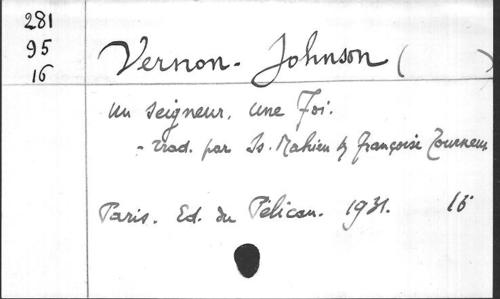 281
95
16
Vernon-Johnson ( )
Un Seigneur. Une Foi.
- trad. par Is. Mahieu & Françoise Tourneux
Paris. Ed. du Pélican. 1931. 16